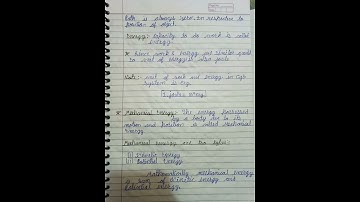 Path is always zero in respective to
position of object.
Energy:- Capacity to do work is called
Energy.
* Since work & energy put similar quanti
so unit of energy is also joule
Note:- unit of work and energy in CGS
system is erg.
1 joule = 10⁷ erg
* Mechanical Energy:- The energy possessed
by a body due to its
motion and position is called Mechanical
Energy
Mechanical energy are two types:
(i) Kinetic Energy
(ii) Potential Energy
Mathematically mechanical energy
is sum of kinetic energy and
potential energy.